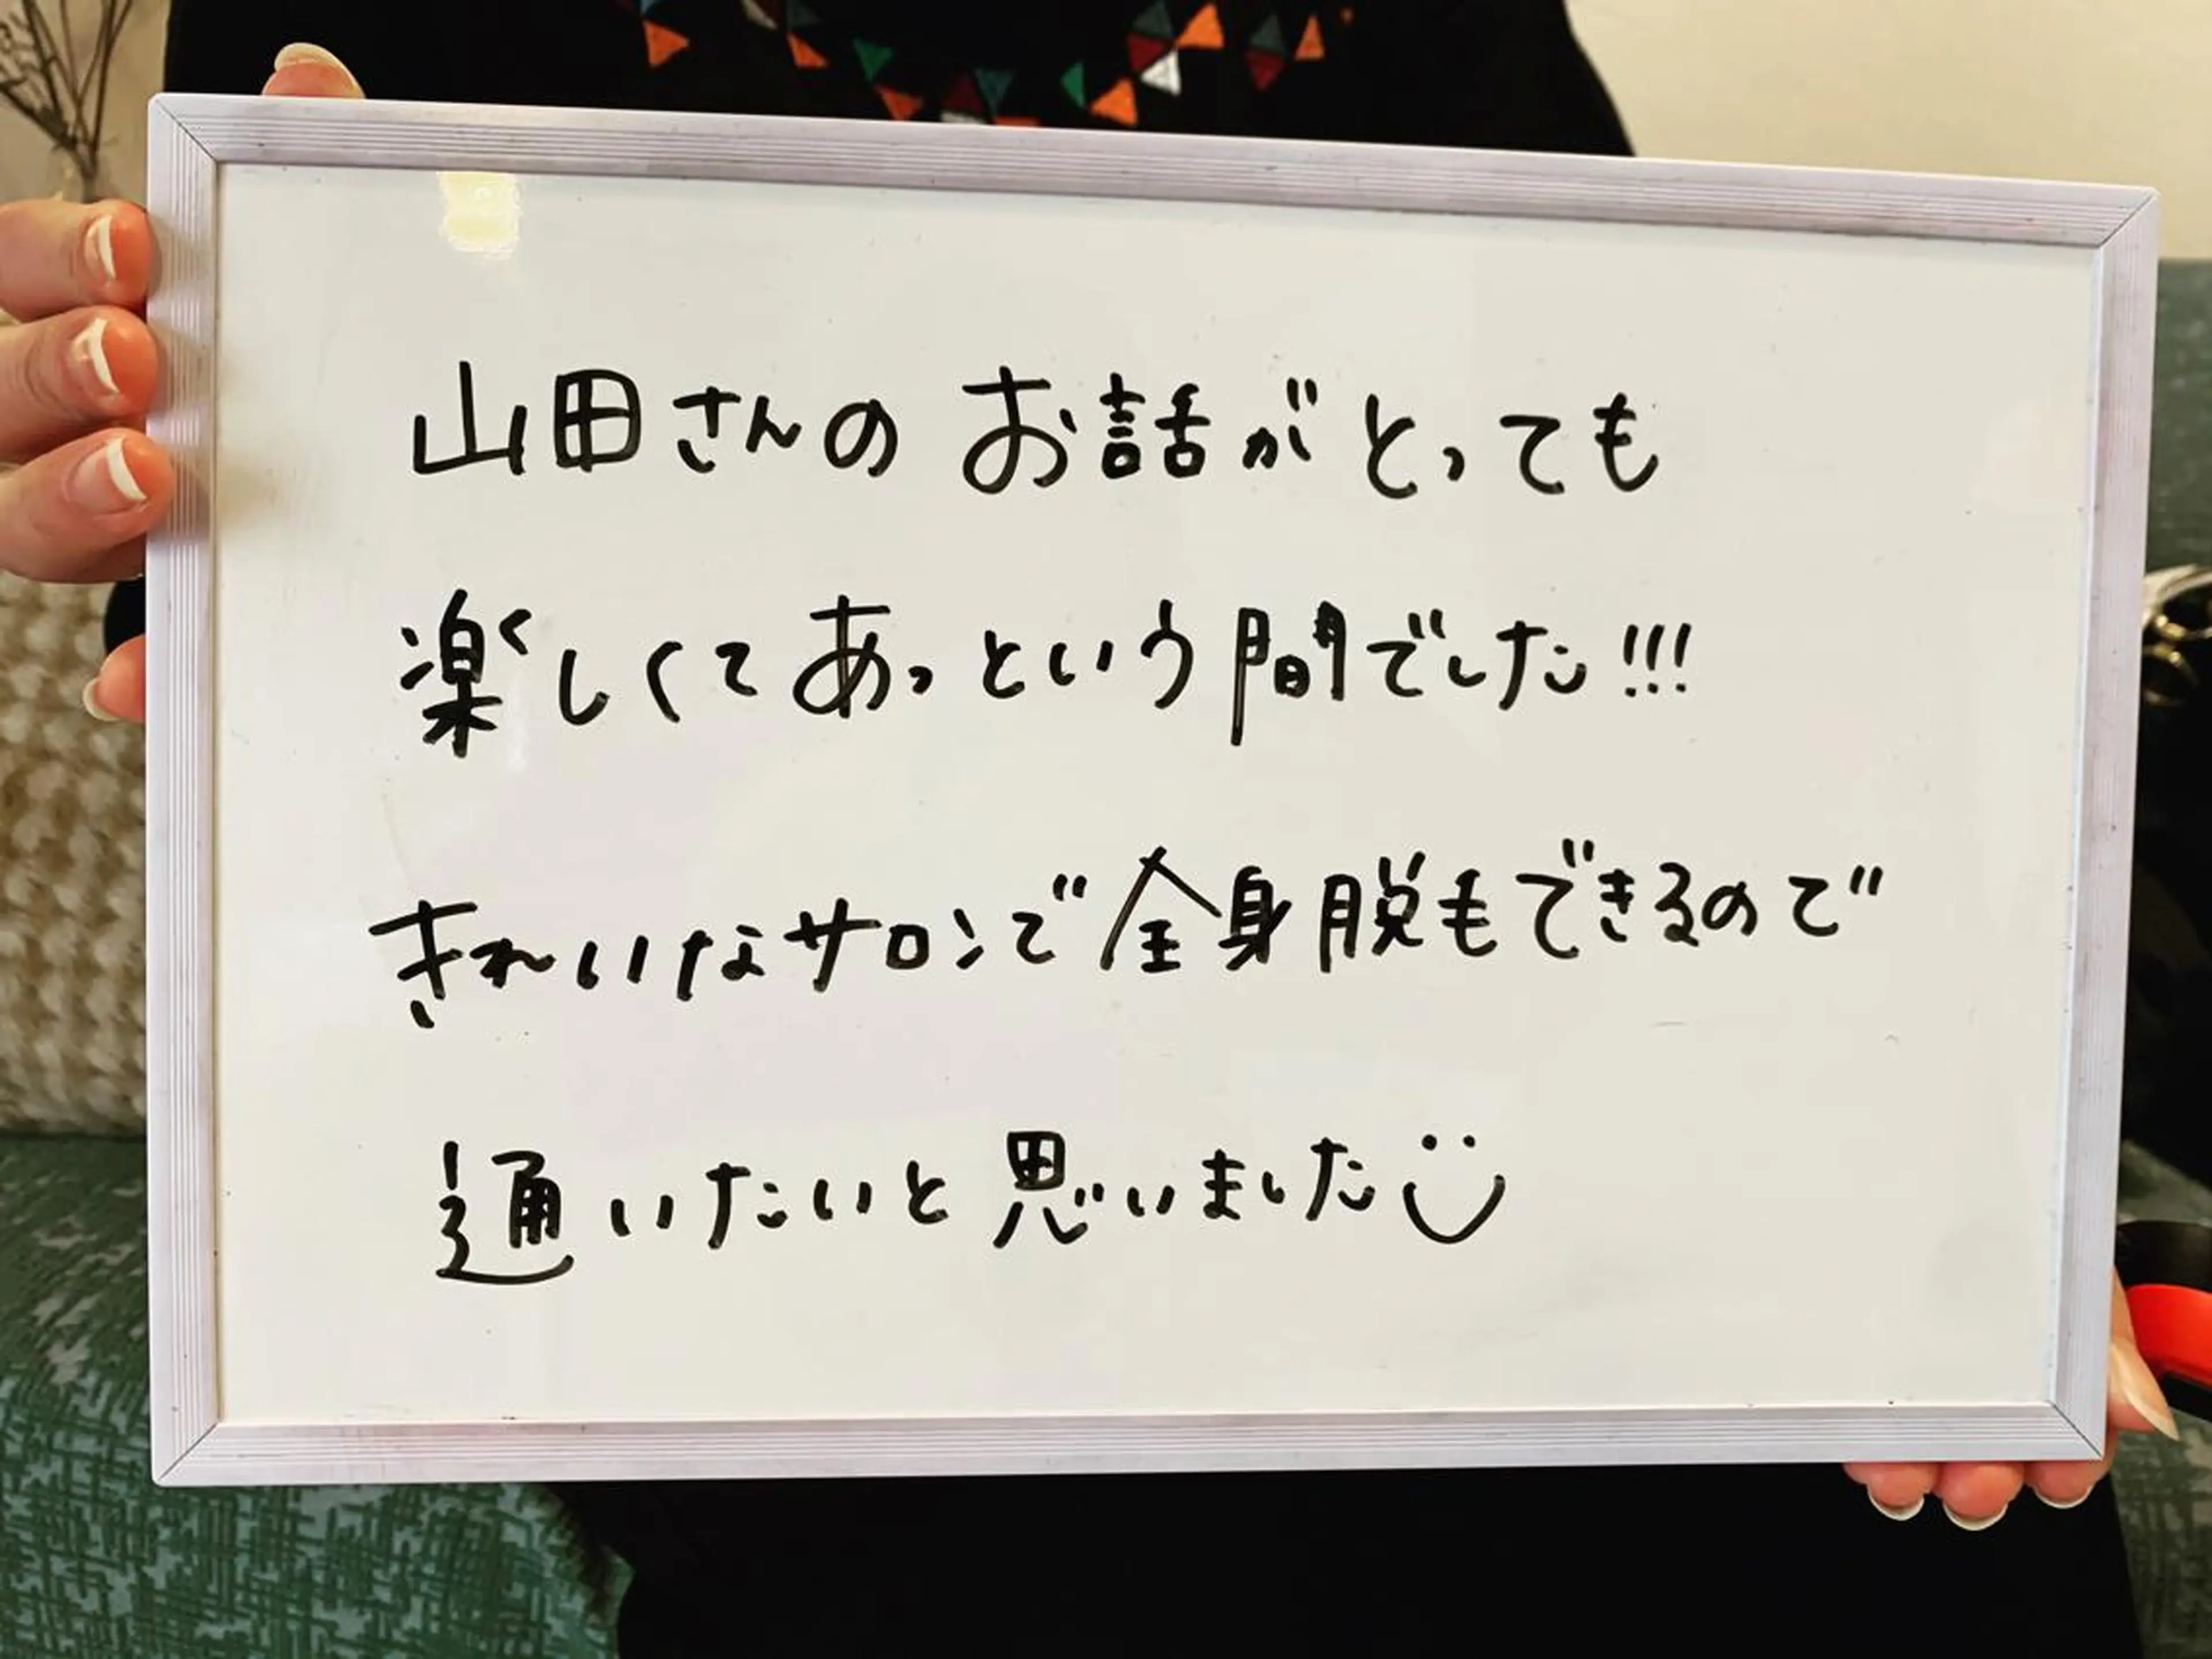 山田さんの お話がとっても
楽しくてあっという間でした!!!
きれいなサロンで全身脱毛できるので
通いたいと思いました